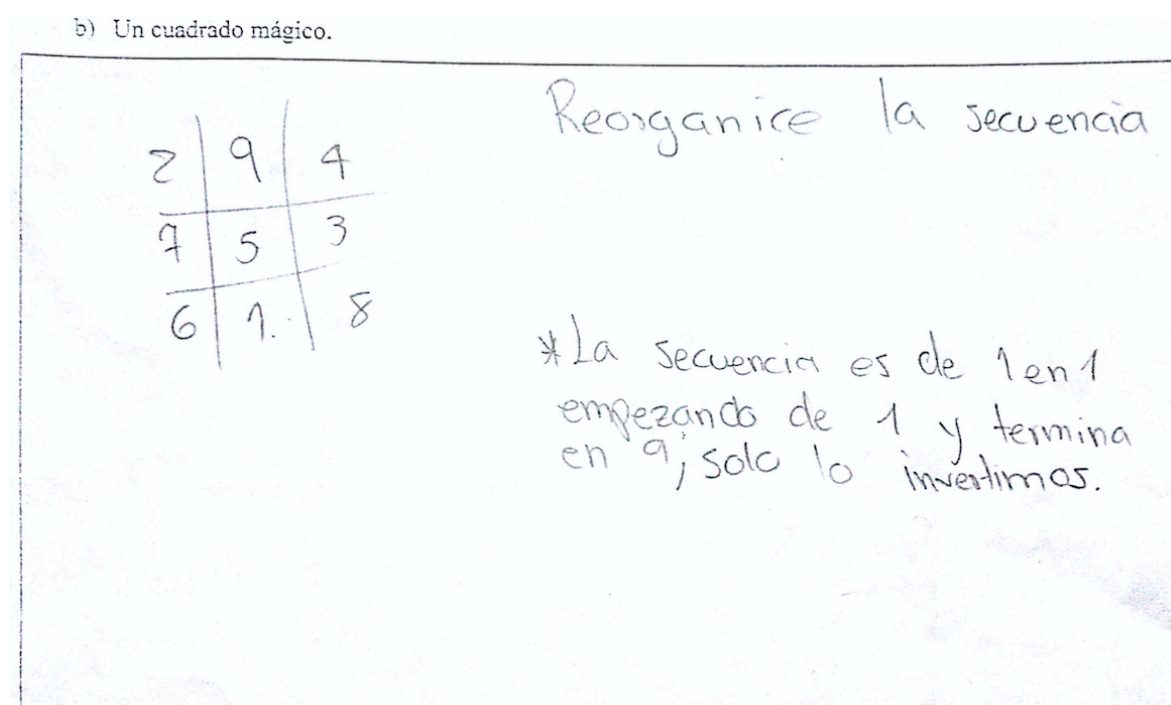 b) Un cuadrado mágico.
2 9 4
7 5 3
6 1 8
Reorganice la secuencia
*La secuencia es de 1 en 1
empezando de 1 y termina
en 9, solo lo invertimos.